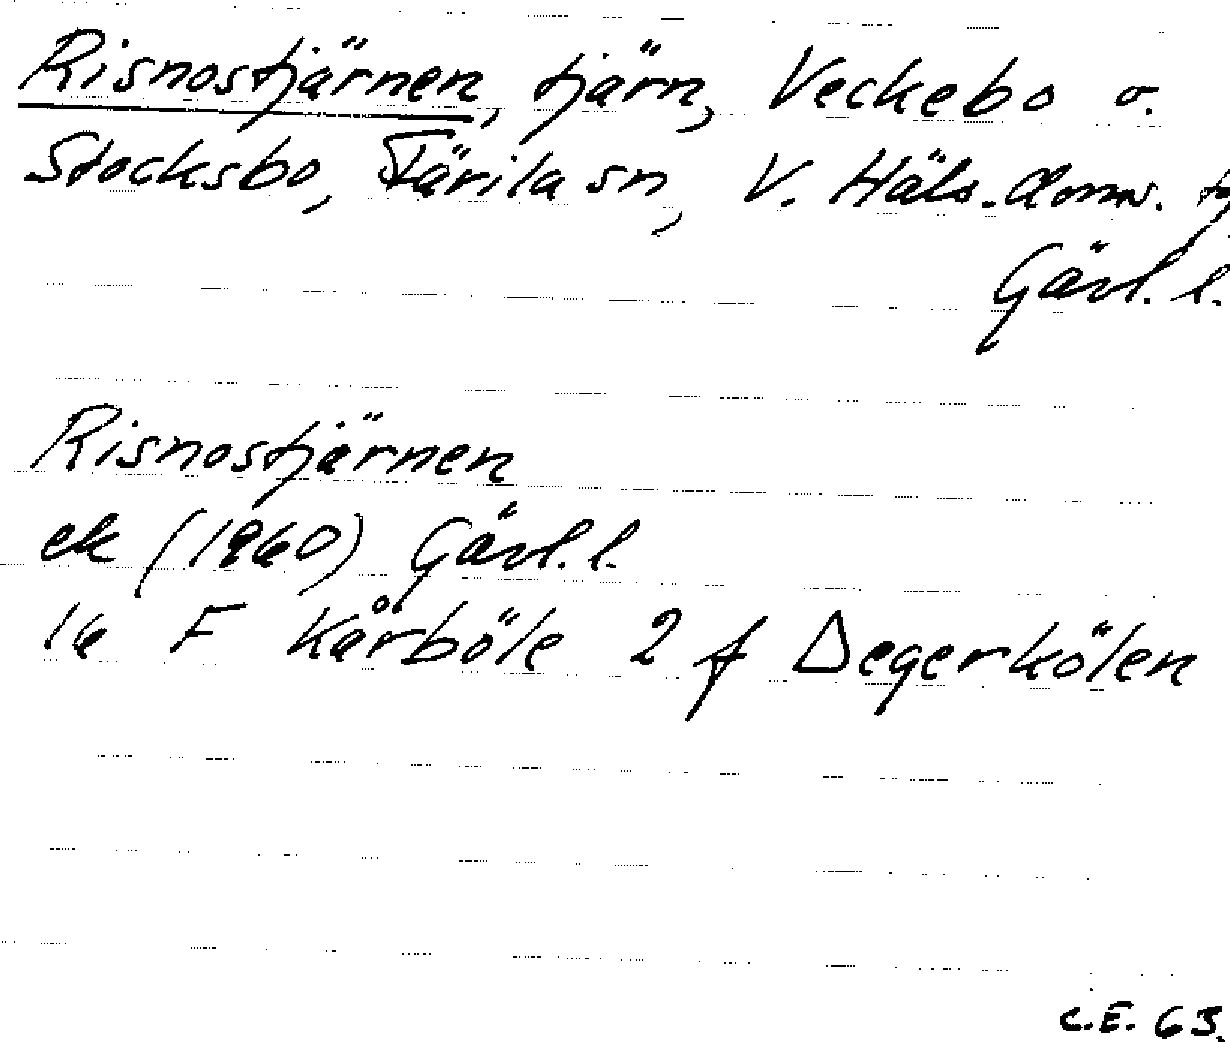 Risnostjärnen, tjärn, Veckebo o.
Stocksbo, Färila sn, V. Häls. doms.
Gävl. l.
Risnostjärnen
ek (1960) Gävl. l.
16 F Kårböle 2 f Degerkölen
C.E. 63.